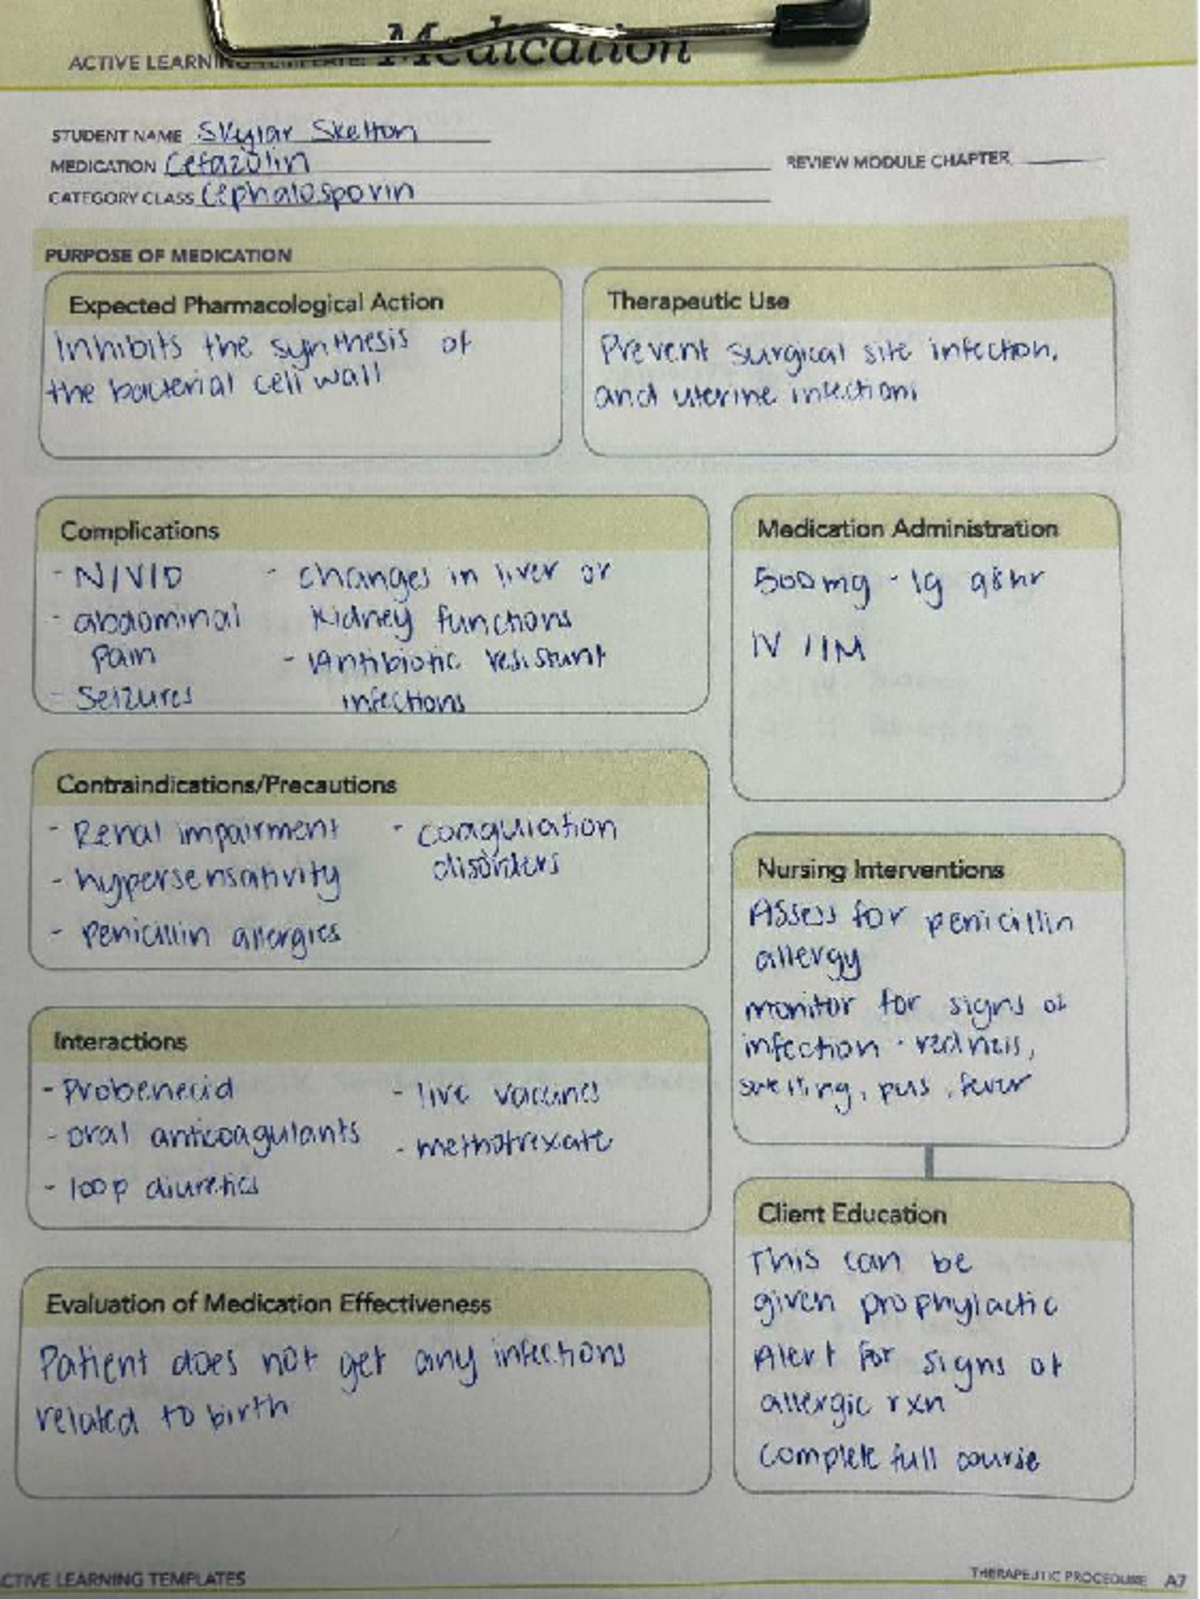 ACTIVE LEARNING TEMPLATE: Medication
STUDENT NAME Skylar Skelton
MEDICATION Cefazolin
REVIEW MODULE CHAPTER
CATEGORY CLASS Cephalosporin
PURPOSE OF MEDICATION
Expected Pharmacological Action
Inhibits the synthesis of
the bacterial cell wall
Therapeutic Use
Prevent surgical site infection,
and uterine infections
Complications
- N/V/D
- abdominal
pain
- Seizures
- changes in liver or
kidney functions
- Antibiotic resistant
infections
Medication Administration
500mg - 1g q8hr
IV / IM
Contraindications/Precautions
- Renal impairment
- hypersensativity
- penicillin allergies
- coagulation
disorders
Nursing Interventions
Assess for penicillin
allergy
monitor for signs of
infection - redness,
swelling, pus, fever
Interactions
- Probenecid
- oral anticoagulants
- loop diuretics
- live vaccines
- methotrexate
Evaluation of Medication Effectiveness
Patient does not get any infections
related to birth
Client Education
This can be
given prophylactic
Alert for signs of
allergic rxn
complete full course
ACTIVE LEARNING TEMPLATES
THERAPEUTIC PROCEDURE A7